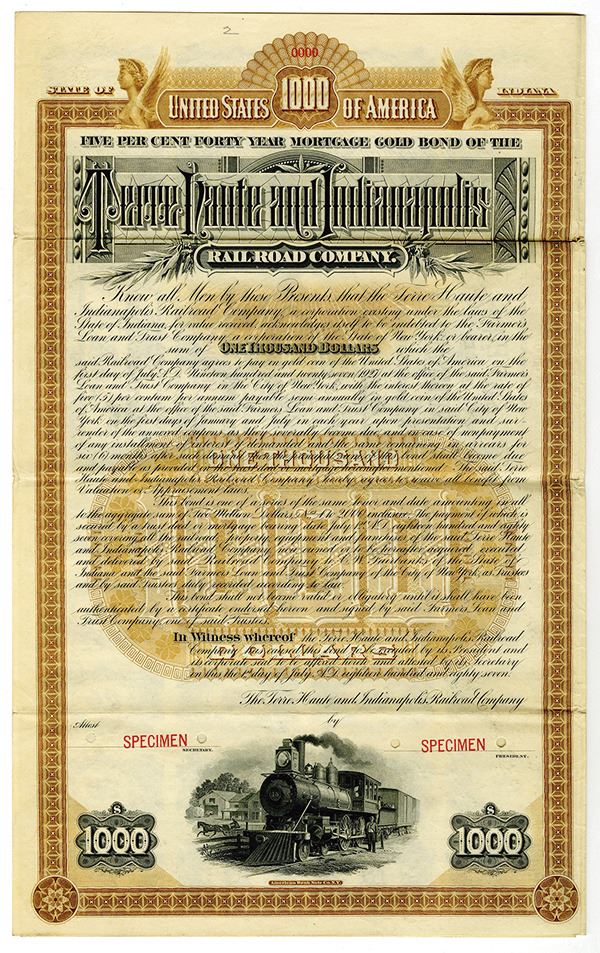 2
0000
STATE OF
INDIANA
UNITED STATES 1000 OF AMERICA
FIVE PER CENT FORTY YEAR MORTGAGE GOLD BOND OF THE
Terre Haute and Indianapolis
RAILROAD COMPANY.
Know all Men by these Presents, that the Terre Haute and
Indianapolis Railroad Company, a corporation existing under the laws of the
State of Indiana, for value received, acknowledges itself to be indebted to the Farmers
Loan and Trust Company, a corporation of the State of New York or bearer, in the
sum of ONE THOUSAND DOLLARS which the
said Railroad Company agrees to pay in gold coin of the United States of America on the
first day of July, A.D. Nineteen hundred and twenty seven (1927) at the office of the said Farmers
Loan and Trust Company in the City of New York, with the interest thereon at the rate of
five (5) per centum per annum payable semi annually in gold coin of the United States
of America at the office of the said Farmers Loan and Trust Company in said City of New
York on the first days of January and July in each year upon presentation and sur-
render of the annexed coupons as they severally become due, and in case of nonpayment
of any installment of interest when demanded and the same remaining in arrears for
six (6) months after such demand the principal sum of this bond shall become due
and payable as provided in the trust deed hereinafter mentioned. The said Terre
Haute and Indianapolis Railroad Company hereby agrees to waive all benefit from
Valuation or Appraisement laws.
This bond is one of a series of the same tenor and date amounting in all
to the aggregate sum of Two Million Dollars, Nos. 1 to 2000 inclusive, the payment of which is
secured by a trust deed or mortgage bearing date July 1st A.D. eighteen hundred and eighty
seven covering all the railroad property equipment and franchises of the said Terre Haute
and Indianapolis Railroad Company now owned or to be hereafter acquired, executed
and delivered by said Railroad Company to Fairbanks of the State of
Indiana and the said Farmers Loan and Trust Company of the City of New York, as Trustees
and by said Trustees duly recorded according to law.
This bond shall not become valid or obligatory until it shall have been
authenticated by a certificate endorsed hereon and signed by said Farmers Loan and
Trust Company, one of said Trustees.
In Witness whereof the Terre Haute and Indianapolis Railroad
Company has caused this bond to be executed by its President and
its corporate seal to be affixed hereto and attested by its Secretary
on this the 1st day of July, A.D. eighteen hundred and eighty seven.
The Terre Haute and Indianapolis Railroad Company
Attest by
ONE THOUSAND
DOLLARS
SPECIMEN
SECRETARY.
SPECIMEN
PRESIDENT.
$
1000
$
1000
American Bank Note Co. N.Y.